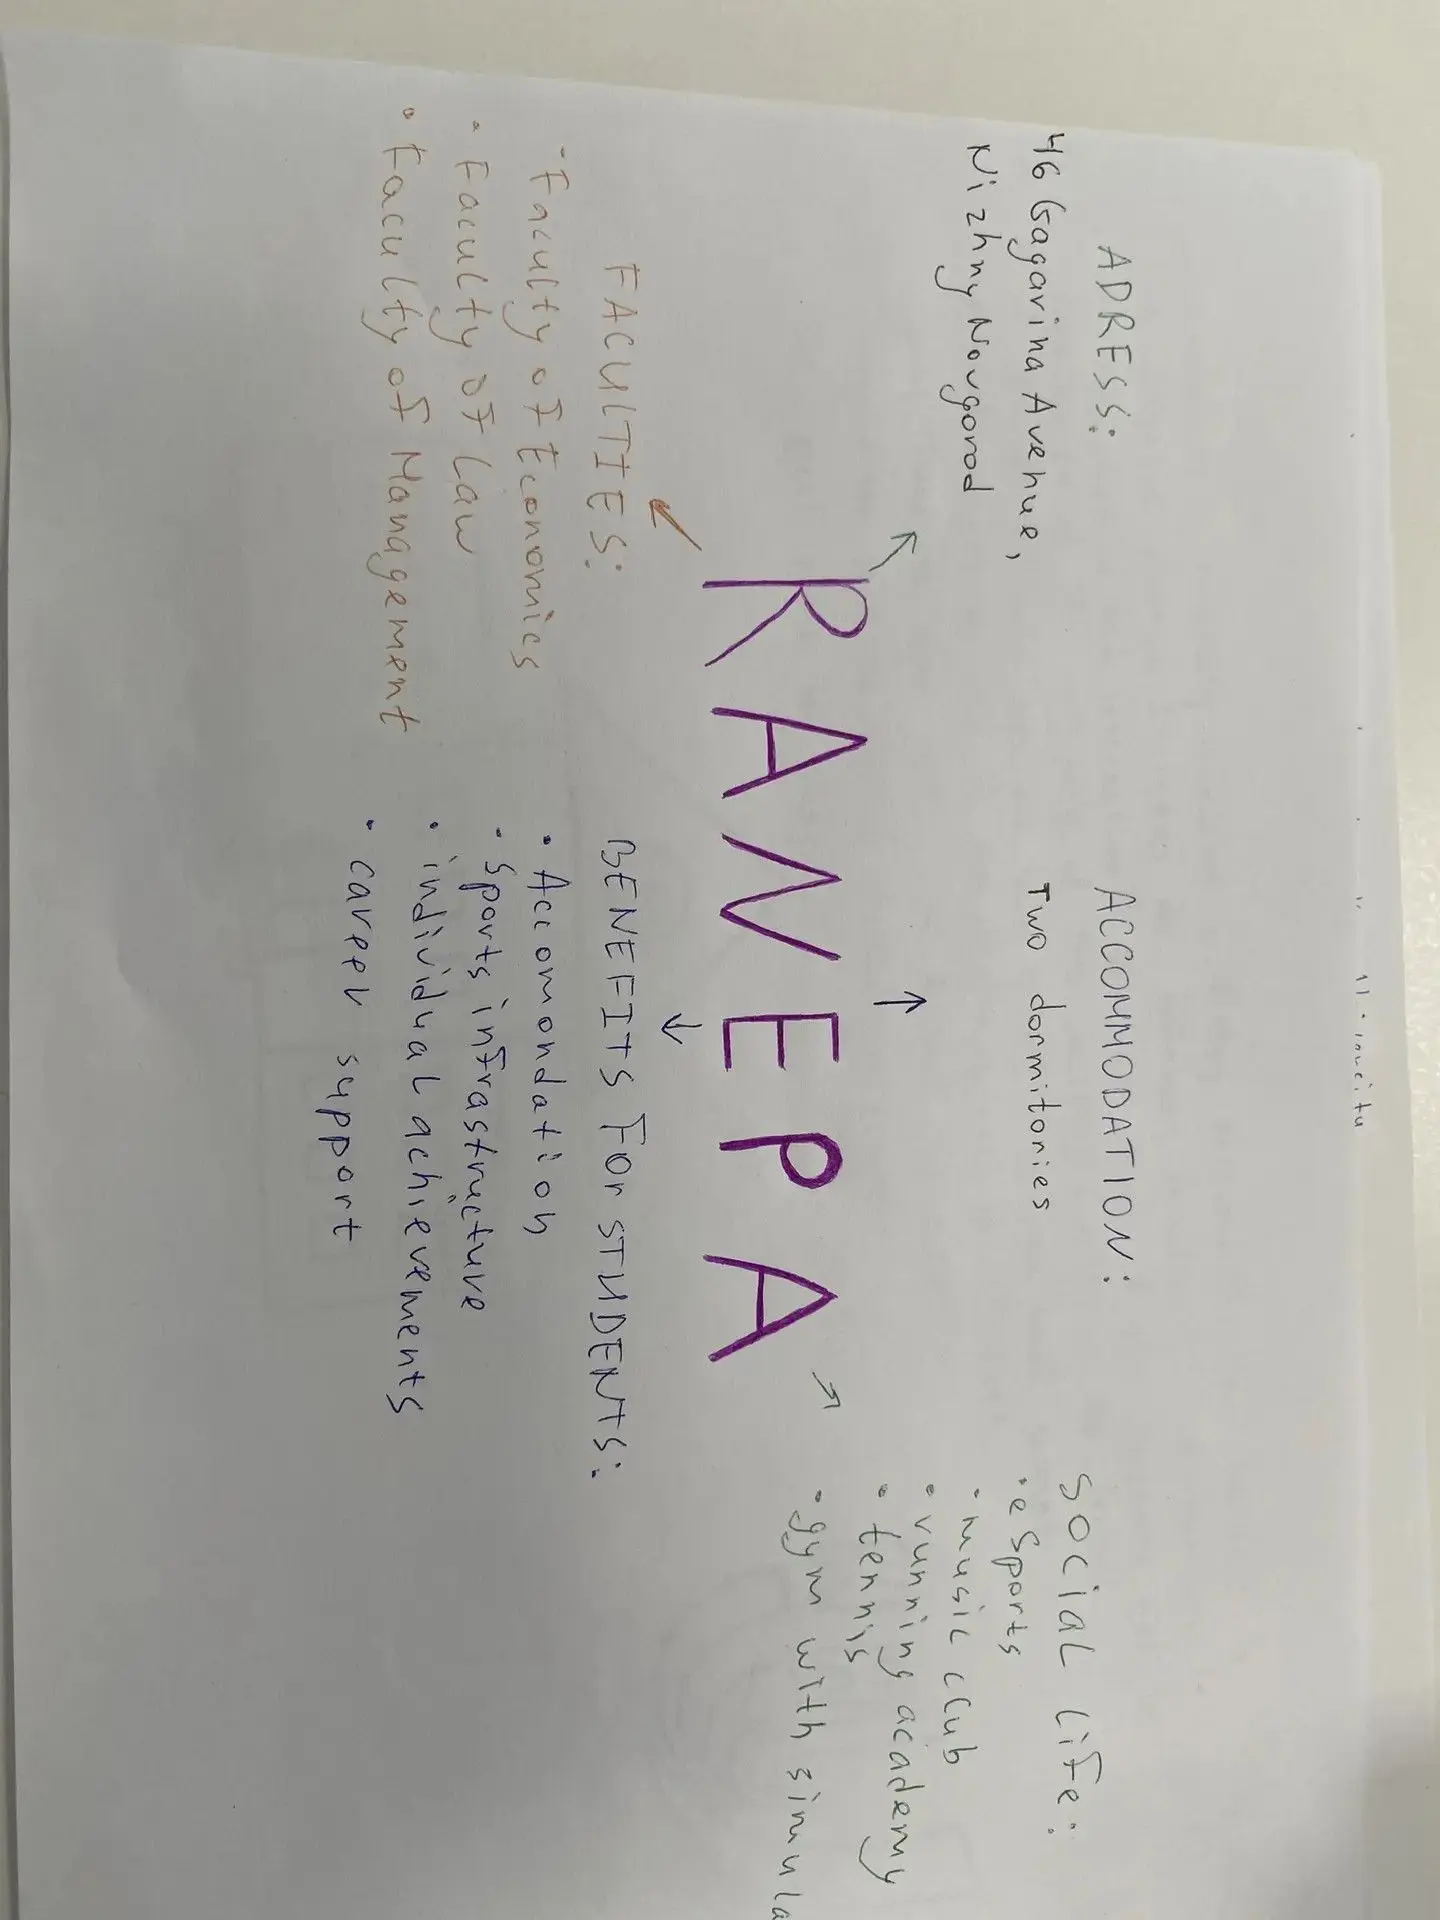 ADRESS:
46 Gagarina Avenue,
Nizhny Novgorod
ACCOMMODATION:
Two dormitories
Social Life:
• eSports
• music club
• running academy
• tennis
• gym with simula
RANEPA
FACULTIES:
• Faculty of Economics
• Faculty of Law
• Faculty of Management
BENEFITS For STUDENTS:
• Accomondation
• Sports infrastructure
• individual achievements
• career support